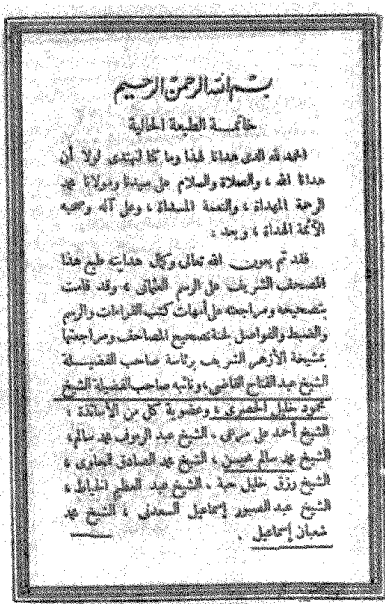 بسم الله الرحمن الرحيم
خاتمة الطبعة الحالية
الحمد لله الذى هدانا لهذا وما كنا لنهتدى لولا أن
هدانا الله ، والصلاة والسلام على سيدنا ومولانا محمد
الرحمة المهداة ، والنعمة المسداة ، وعلى آله وصحبه
الأئمة الهداة ، وبعد :
فقد تم بعون الله تعالى وكمال هدايته طبع هذا
المصحف الشريف على الرسم العثمانى ، وقد قامت
بتصحيحه ومراجعته على أمهات كتب القراءات والرسم
والضبط والفواصل لجنة تصحيح المصاحف ومراجعتها
بمشيخة الأزهر الشريف برئاسة صاحب الفضيلة
الشيخ عبد الفتاح القاضى ، ونائبه صاحب الفضيلة الشيخ
محمود خليل الحصرى ، وعضوية كل من الأساتذة :
الشيخ أحمد على مرعى . الشيخ عبد الرءوف محمد سالم ،
الشيخ محمد سالم محيسن ، الشيخ محمد الصادق قمحاوى ،
الشيخ رزق خليل حبة . الشيخ عبد العظيم الخياط ،
الشيخ عبد الصبور إسماعيل السعدنى ، الشيخ محمد
شعبان إسماعيل .